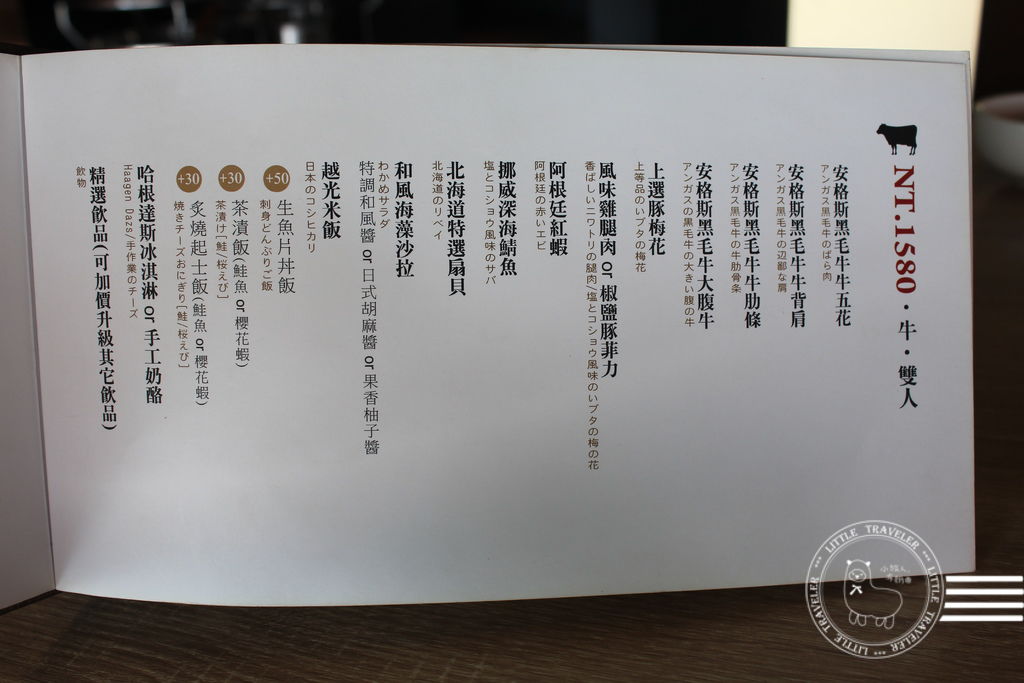 NT.1580・牛・雙人
安格斯黑毛牛牛五花
アンガス黒毛牛のばら肉
安格斯黑毛牛牛背肩
アンガス黒毛牛の辺鄙な肩
安格斯黑毛牛牛肋條
アンガス黒毛牛の牛肋骨条
安格斯黑毛牛大腹牛
アンガスの黒毛牛の大きい腹の牛
上選豚梅花
上等品のいブタの梅花
風味雞腿肉 or 椒鹽豚菲力
香ばしいニワートリの腿肉/塩とコショウ風味のいブタの梅の花
阿根廷紅蝦
阿根廷の赤いエビ
挪威深海鯖魚
塩とコショウ風味のサバ
北海道特選扇貝
北海道のリベイ
和風海藻沙拉
わかめサラダ
特調和風醬 or 日式胡麻醬 or 果香柚子醬
越光米飯
日本のコシヒカリ
+50 生魚片丼飯
刺身どんぶりご飯
+30 茶漬飯(鮭魚 or 櫻花蝦)
茶漬け[鮭/桜えび]
+30 炙燒起士飯(鮭魚 or 櫻花蝦)
焼きチーズおにぎり[鮭/桜えび]
哈根達斯冰淇淋 or 手工奶酪
Haagen Dazs/手作業のチーズ
精選飲品(可加價升級其它飲品)
飲物
LITTLE TRAVELER
LITTLE TRAVELER
LITTLE TRAVELER
小旅人